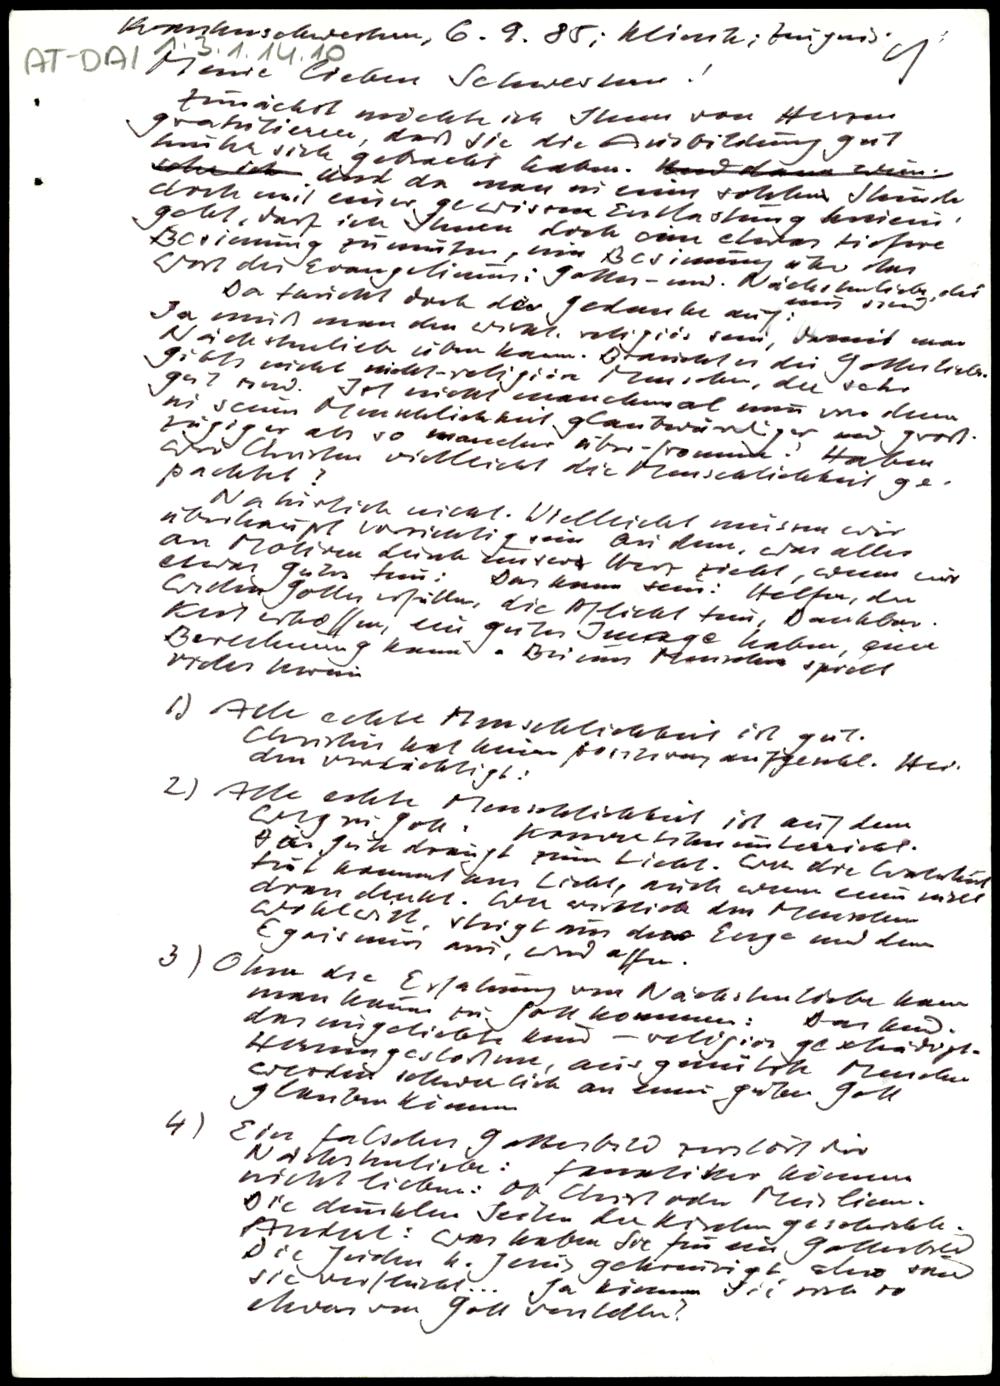 Krankenschwestern, 6. 9. 85; Klinik; Zeugnis.
AT-DAI 1.3.1.14.10
Meine lieben Schwestern!
Zunächst möchte ich Ihnen von Herzen
gratulieren, daß Sie die Ausbildung gut
hinter sich gebracht haben. Und dann wün-
sche ich Und da man in einer solchen Stunde
doch mit einer gewissen Entlastung hinein
geht, darf ich Ihnen doch eine etwas tiefere
Besinnung zumuten, eine Besinnung über das
Wort des Evangeliums: Gottes- und Nächstenliebe, die
eins sind
Da taucht doch der Gedanke auf:
Ja muß man denn wirkl. religiös sein, damit man
Nächstenliebe üben kann. Braucht es die Gottesliebe.
gibts nicht nicht-religiöse Menschen, die sehr
gut sind. Ist nicht manchmal einer von denen
in seiner Menschlichkeit glaubwürdiger und groß-
zügiger als so mancher über-fromme? Haben
wir Christen vielleicht die Menschlichkeit ge-
pachtet?
Natürlich nicht. Vielleicht müssen wir
überhaupt vorsichtig sein bei dem, was alles
an Motiven durch unser Herz zieht, wenn wir
etwas Gutes tun: Das kann sein: Helfen, den
Willen Gottes erfüllen, die Pflicht tun, Dankbar-
keit erhoffen, ein gutes Image haben, eine
Berechnung kann - Bei uns Menschen spielt
vieles herein
1) Alle echte Menschlichkeit ist gut.
Christus hat keinen aufgestel. Hei-
den verdächtigt:
2) Alle echte Menschlichkeit ist auf dem
Weg zu Gott:
Das Gute drängt zum Licht. Wer die Wahrheit
tut kommt ans Licht, auch wenn einer nicht
dran denkt. Wer wirklich den Menschen
wohlwill, steigt aus der Enge und dem
Egoismus aus, wird offen.
3) Ohne die Erfahrung von Nächstenliebe kann
man kaum zu Gott kommen: Das Kind.
das ungeliebte Kind – religiös geschädigt.
ausgenützte Menschen
werden schwerlich an einen guten Gott
glauben können
4) Ein falsches Gottesbild zerstört die
Nächstenliebe: Fanatiker können
nicht lieben: ob Christ oder Muslim.
Die dunklen Seiten der Kirchengeschichte.
was haben Sie für ein Gottesbild
Die Juden h. Jesus gekreuzigt also sind
sie verflucht... Ja können Sie sich so
etwas von Gott vorstellen?